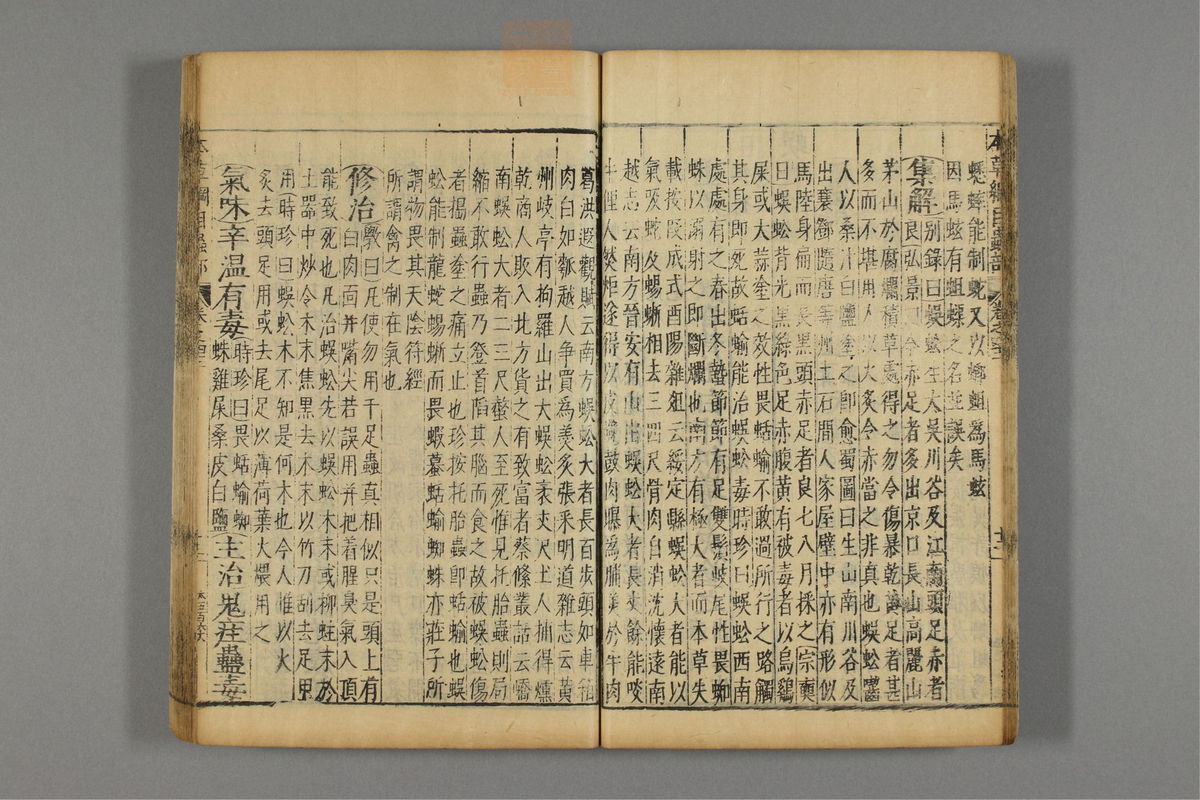 蟋蟀能制蛇又以螂蛆為馬蚿
因馬蚿有蛆蟝之名並誤矣
集解别錄曰蜈蚣生大吳川谷及江南頭足赤者
良弘景曰今赤足者多出京口長山高麗山
茅山於腐爛積草處得之勿令傷暴乾黃足者甚
多而不堪用人以火炙令赤當之非真也蜈蚣嚙
人以桑汁白鹽塗之即愈蜀圖曰生山南川谷及
出襄鄧隨唐等州土石間人家屋壁中亦有形似
馬陸身扁而長黑頭赤足者良七八月採之宗奭
曰蜈蚣背光黑綠色足赤腹黃有被毒者以烏雞
屎或大蒜塗之效性畏蛞蝓不敢過所行之路觸
其身即死故蛞蝓能治蜈蚣毒時珍曰蜈蚣西南
處處有之春出冬蟄節節有足雙鬚岐尾性畏蜘
蛛以溺射之即斷爛也南方有極大者而本草失
載按段成式酉陽雜俎云綏定縣蜈蚣大者能以
氣吸蛇及蜴蜥相去三四尺骨肉自消沈懷遠南
越志云南方晉安有山出蜈蚣大者長丈餘能啖
牛俚人燃炬遂得以皮鞔鼓肉曝為脯美於牛肉
葛洪遐觀賦云南方蜈蚣大者長百步頭如車箱
肉白如瓠越人爭買為羹炙張耒明道雜志云黃
州岐亭有拘羅山出大蜈蚣袤丈尺土人捕得熏
乾商人販入北方貨之有致富者蔡絛叢話云嶠
南蜈蚣大者二三尺螫人至死惟見托胎蟲則局
縮不敢行蟲乃登首陷其腦而食之故被蜈蚣傷
者搗蟲塗之痛立止也珍按托胎蟲即蛞蝓也蜈
蚣能制龍蛇蜴蜥而畏蝦蟇蛞蝓蜘蛛亦莊子所
謂物畏其天陰符經
所謂禽之制在氣也
修治斆曰凡使勿用千足蟲真相似只是頭上有
白肉面并嘴尖若誤用并把着腥臭氣入頂
能致死也凡治蜈蚣先以蜈蚣木末或柳蛀末於
土器中炒令木末焦黑去木末以竹刀刮去足甲
用時珍曰蜈蚣木不知是何木也今人惟以火
炙去頭足用或去尾足以薄荷葉火煨用之
氣味辛温有毒時珍曰畏蛞蝓蜘
蛛雞屎桑皮白鹽主治鬼疰蠱毒